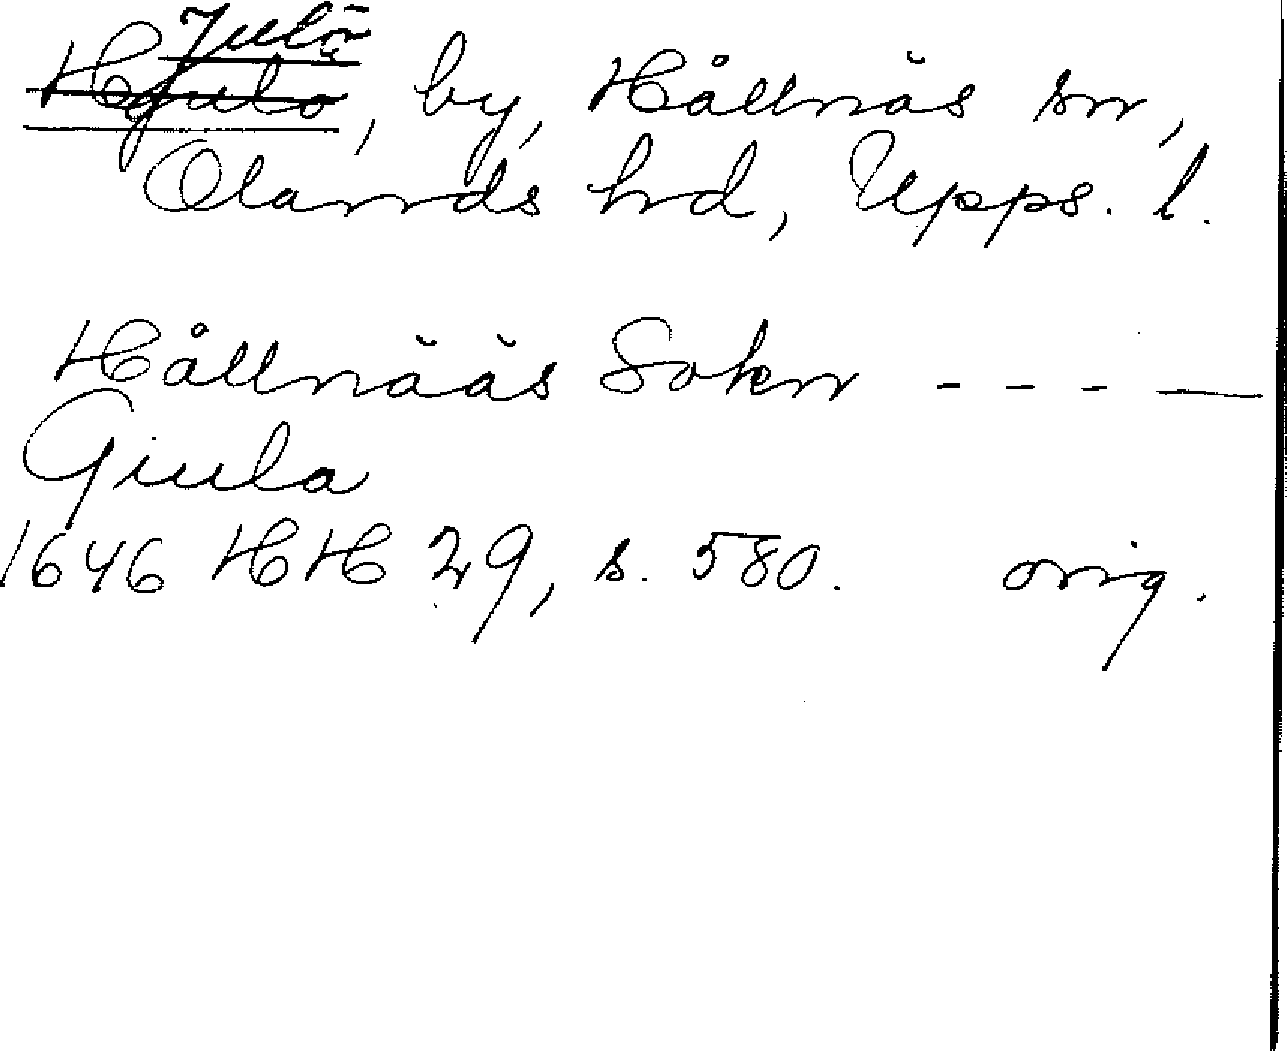 Julö
Hjulö, by, Hållnäs sn,
Olands hd, Upps. l.
Hållnääs Sokn - - - —
Giula
1646 HH 29, s. 580. orig.